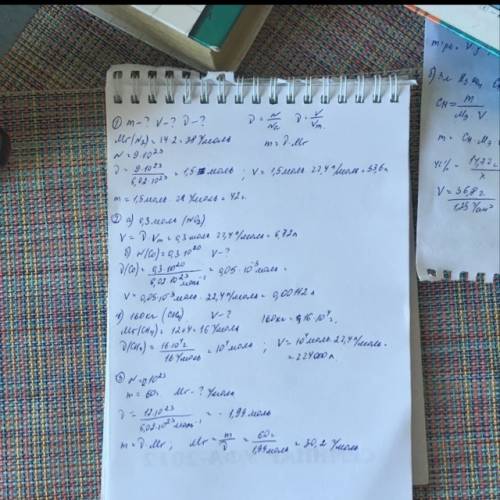 ① m-? V-? ν-? ν = N/Nа ν = V/Vm
Mr(N₂) = 14·2 = 28 г/моль m = ν·Mr
N = 9·10²³
ν = 9·10²³/6,02·10²³ = 1,5 моль ; V = 1,5 моль · 22,4 л/моль = 33,6 л
m = 1,5 моль · 28 г/моль = 42 г.
② а) 0,3 моль (NO₂)
V = ν·Vm = 0,3 моль · 22,4 л/моль = 6,72 л
N(O₂) = 0,3·10²⁰ V-?
= 0,3·10²⁰/6,02·10²³ моль⁻¹ = 0,05·10⁻³ моль
V = 0,05·10⁻³ моль · 22,4 л/моль = 0,00112 л
160 кг (CH₄) V-? 160 кг = 16·10⁴ г.
Mr(CH₄) = 12+4 = 16 г/моль
ν(CH₄) = 16·10⁴ г/16 г/моль = 10⁴ моль ; V = 10⁴ моль · 22,4 л/моль =
= 224000 л.
③ N = 12·10²³
m = 60 г Mr-? г/моль
ν = 12·10²³/6,02·10²³ моль⁻¹ = 1,99 моль
m = ν·Mr ; Mr = m/ν = 60 г/1,99 моль = 30,2 г/моль
Cн = m/Mэ·V
V = 36,8 г/1,23 г/см³